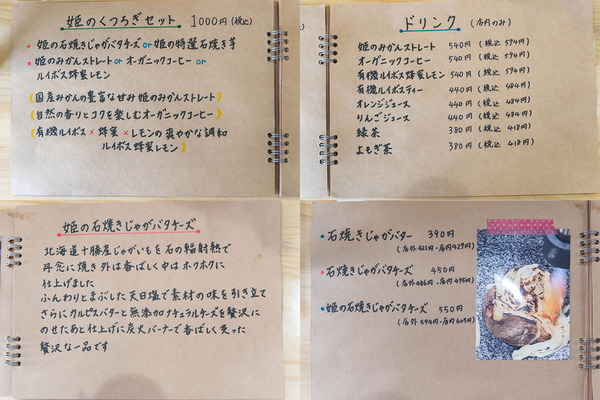 姫のくつろぎセット 1000円(税込)
姫の石焼きじゃがバタチーズor姫の特選石焼き芋
姫のみかんストレートorオーガニックコーヒーor
ルイボス蜂蜜レモン
(国産みかんの豊富な甘み 姫のみかんストレート)
(自然の香りとコクを楽しむオーガニックコーヒー)
(有機ルイボス×蜂蜜×レモンの爽やかな調和
ルイボス蜂蜜レモン)
ドリンク (店内のみ)
姫のみかんストレート 540円 (税込 594円)
オーガニックコーヒー 540円 (税込 594円)
有機ルイボス蜂蜜レモン 540円 (税込 594円)
有機ルイボスティー 440円 (税込 484円)
オレンジジュース 440円 (税込 484円)
りんごジュース 440円 (税込 484円)
緑茶 380円 (税込 418円)
よもぎ茶 380円 (税込 418円)
姫の石焼きじゃがバタチーズ
北海道十勝産じゃがいもを石の輻射熱で
丹念に焼き外は香ばしく中はホクホクに
仕上げました
ふんわりとまぶした天日塩で素材の味を引き立て
さらにカルピスバターと無添加ナチュラルチーズを贅沢に
のせたあと仕上げに炭火バーナーで香ばしく炙った
贅沢な一品です
石焼きじゃがバター 390円
(店外421円・店内429円)
石焼きじゃがバタチーズ 450円
(店外486円・店内495円)
姫の石焼きじゃがバタチーズ 550円
(店外594円・店内605円)